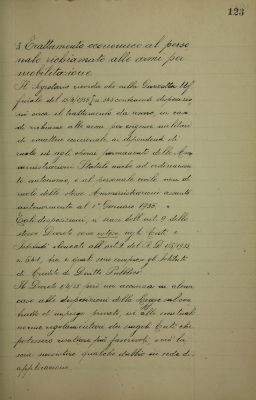 123
3. Trattamento economico al perso
nale richiamato alle armi per
mobilitazione
Il Segretario ricorda che nella Gazzetta Uf
ficiale del
il trattamento da usarsi, in caso
di richiamo alle armi per esigenze militari
di carattere eccezionale, ai dipendenti di
ruolo ed agli altri permanenti delle Am
ministrazioni Statali anche ad ordinamento
autonomo, e al personale civile non di
ruolo delle stesse Amministrazioni assunto
anteriormente al 1° Gennaio 1935.
disposizioni, a' sensi dell'art. 9 dello
stesso Decreto sono estese agli Enti e
all'art. 2 del R. D.
n. fra i quali sono compresi gli Istituti
di Credito di Diritto Pubblico.
Il Decreto però non accenna in alcun
caso alle disposizioni della legge sul con
tratto d'impiego privato, nè alle eventuali
norme regolamentari dei singoli Enti che
potessero risultare più favorevoli, ciò fa
rà qualche dubbio in sede di
applicazione.